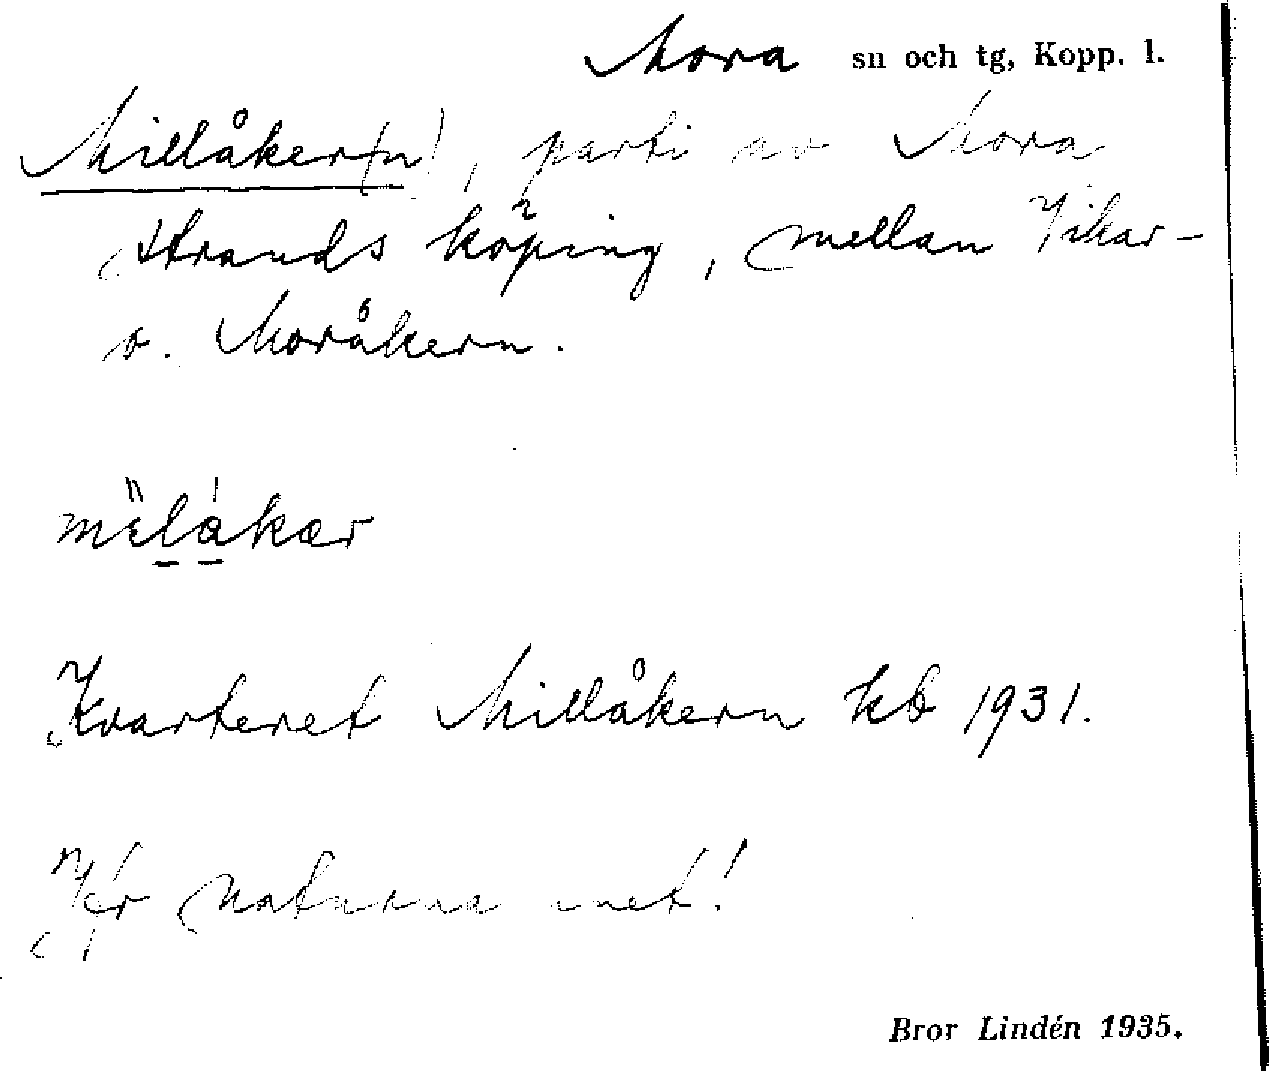 Mora sn och tg, Kopp. l.
Millåker(n), parti av Mora
Strands köping, mellan Vikar-
o. Moråkern.
mèlákær
Kvarteret Millåkern kb 1931.
Jfr naturna
Bror Lindén 1935.